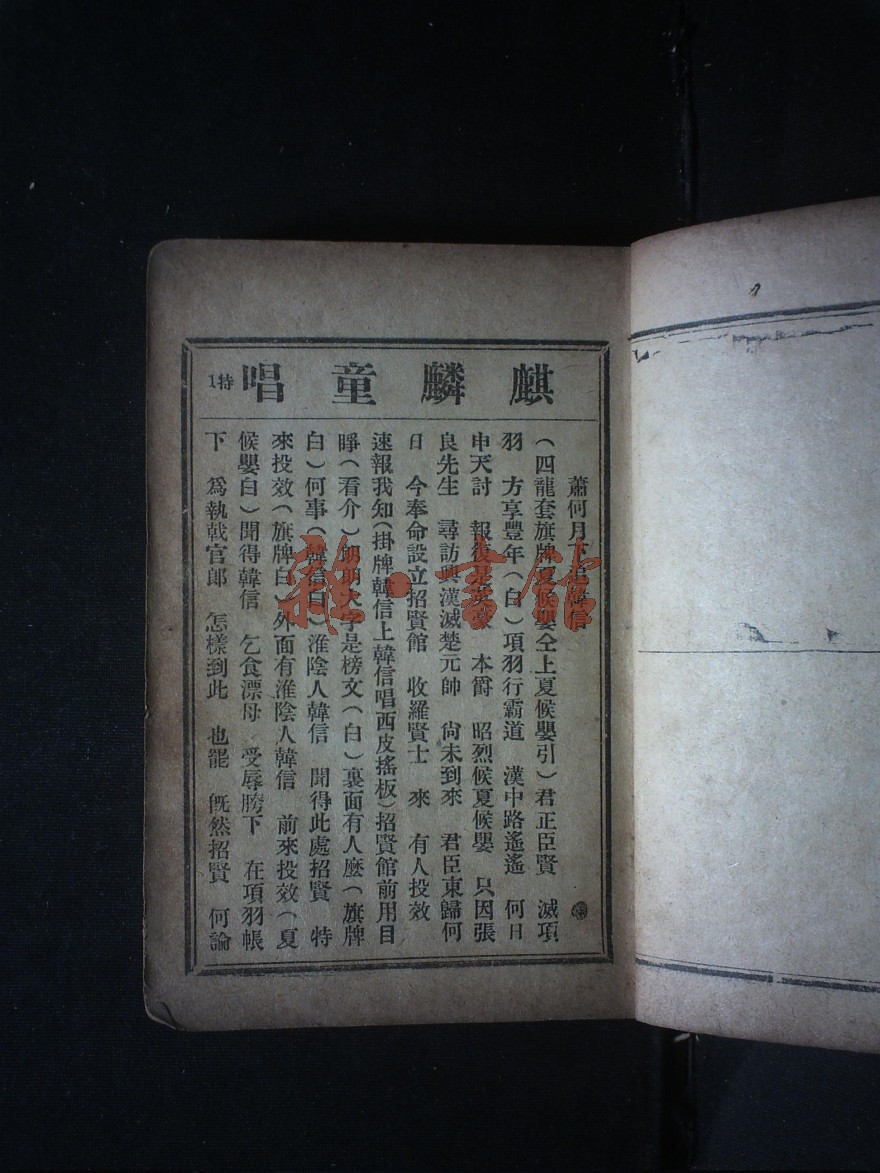 麒麟童唱
特1
蕭何月下追韓信
(四龍套旗牌夏候嬰仝上夏候嬰引)君正臣賢 滅項
羽 方享豐年(白)項羽行霸道 漢中路遙遙 何日
申天討 報復是英豪 本爵 昭烈候夏候嬰 只因張
良先生 尋訪興漢滅楚元帥 尙未到來 君臣東歸何
日 今奉命設立招賢館 收羅賢士 來 有人投效
速報我知(掛牌韓信上韓信唱西皮搖板)招賢館前用目
睜(看介)朗朗大字是榜文(白)裏面有人麽(旗牌
白)何事(韓信白)淮陰人韓信 聞得此處招賢 特
來投效(旗牌白)外面有淮陰人韓信 前來投效(夏
候嬰白)聞得韓信 乞食漂母 受辱胯下 在項羽帳
下 爲執戟官郎 怎樣到此 也罷 旣然招賢 何論
雜·書館